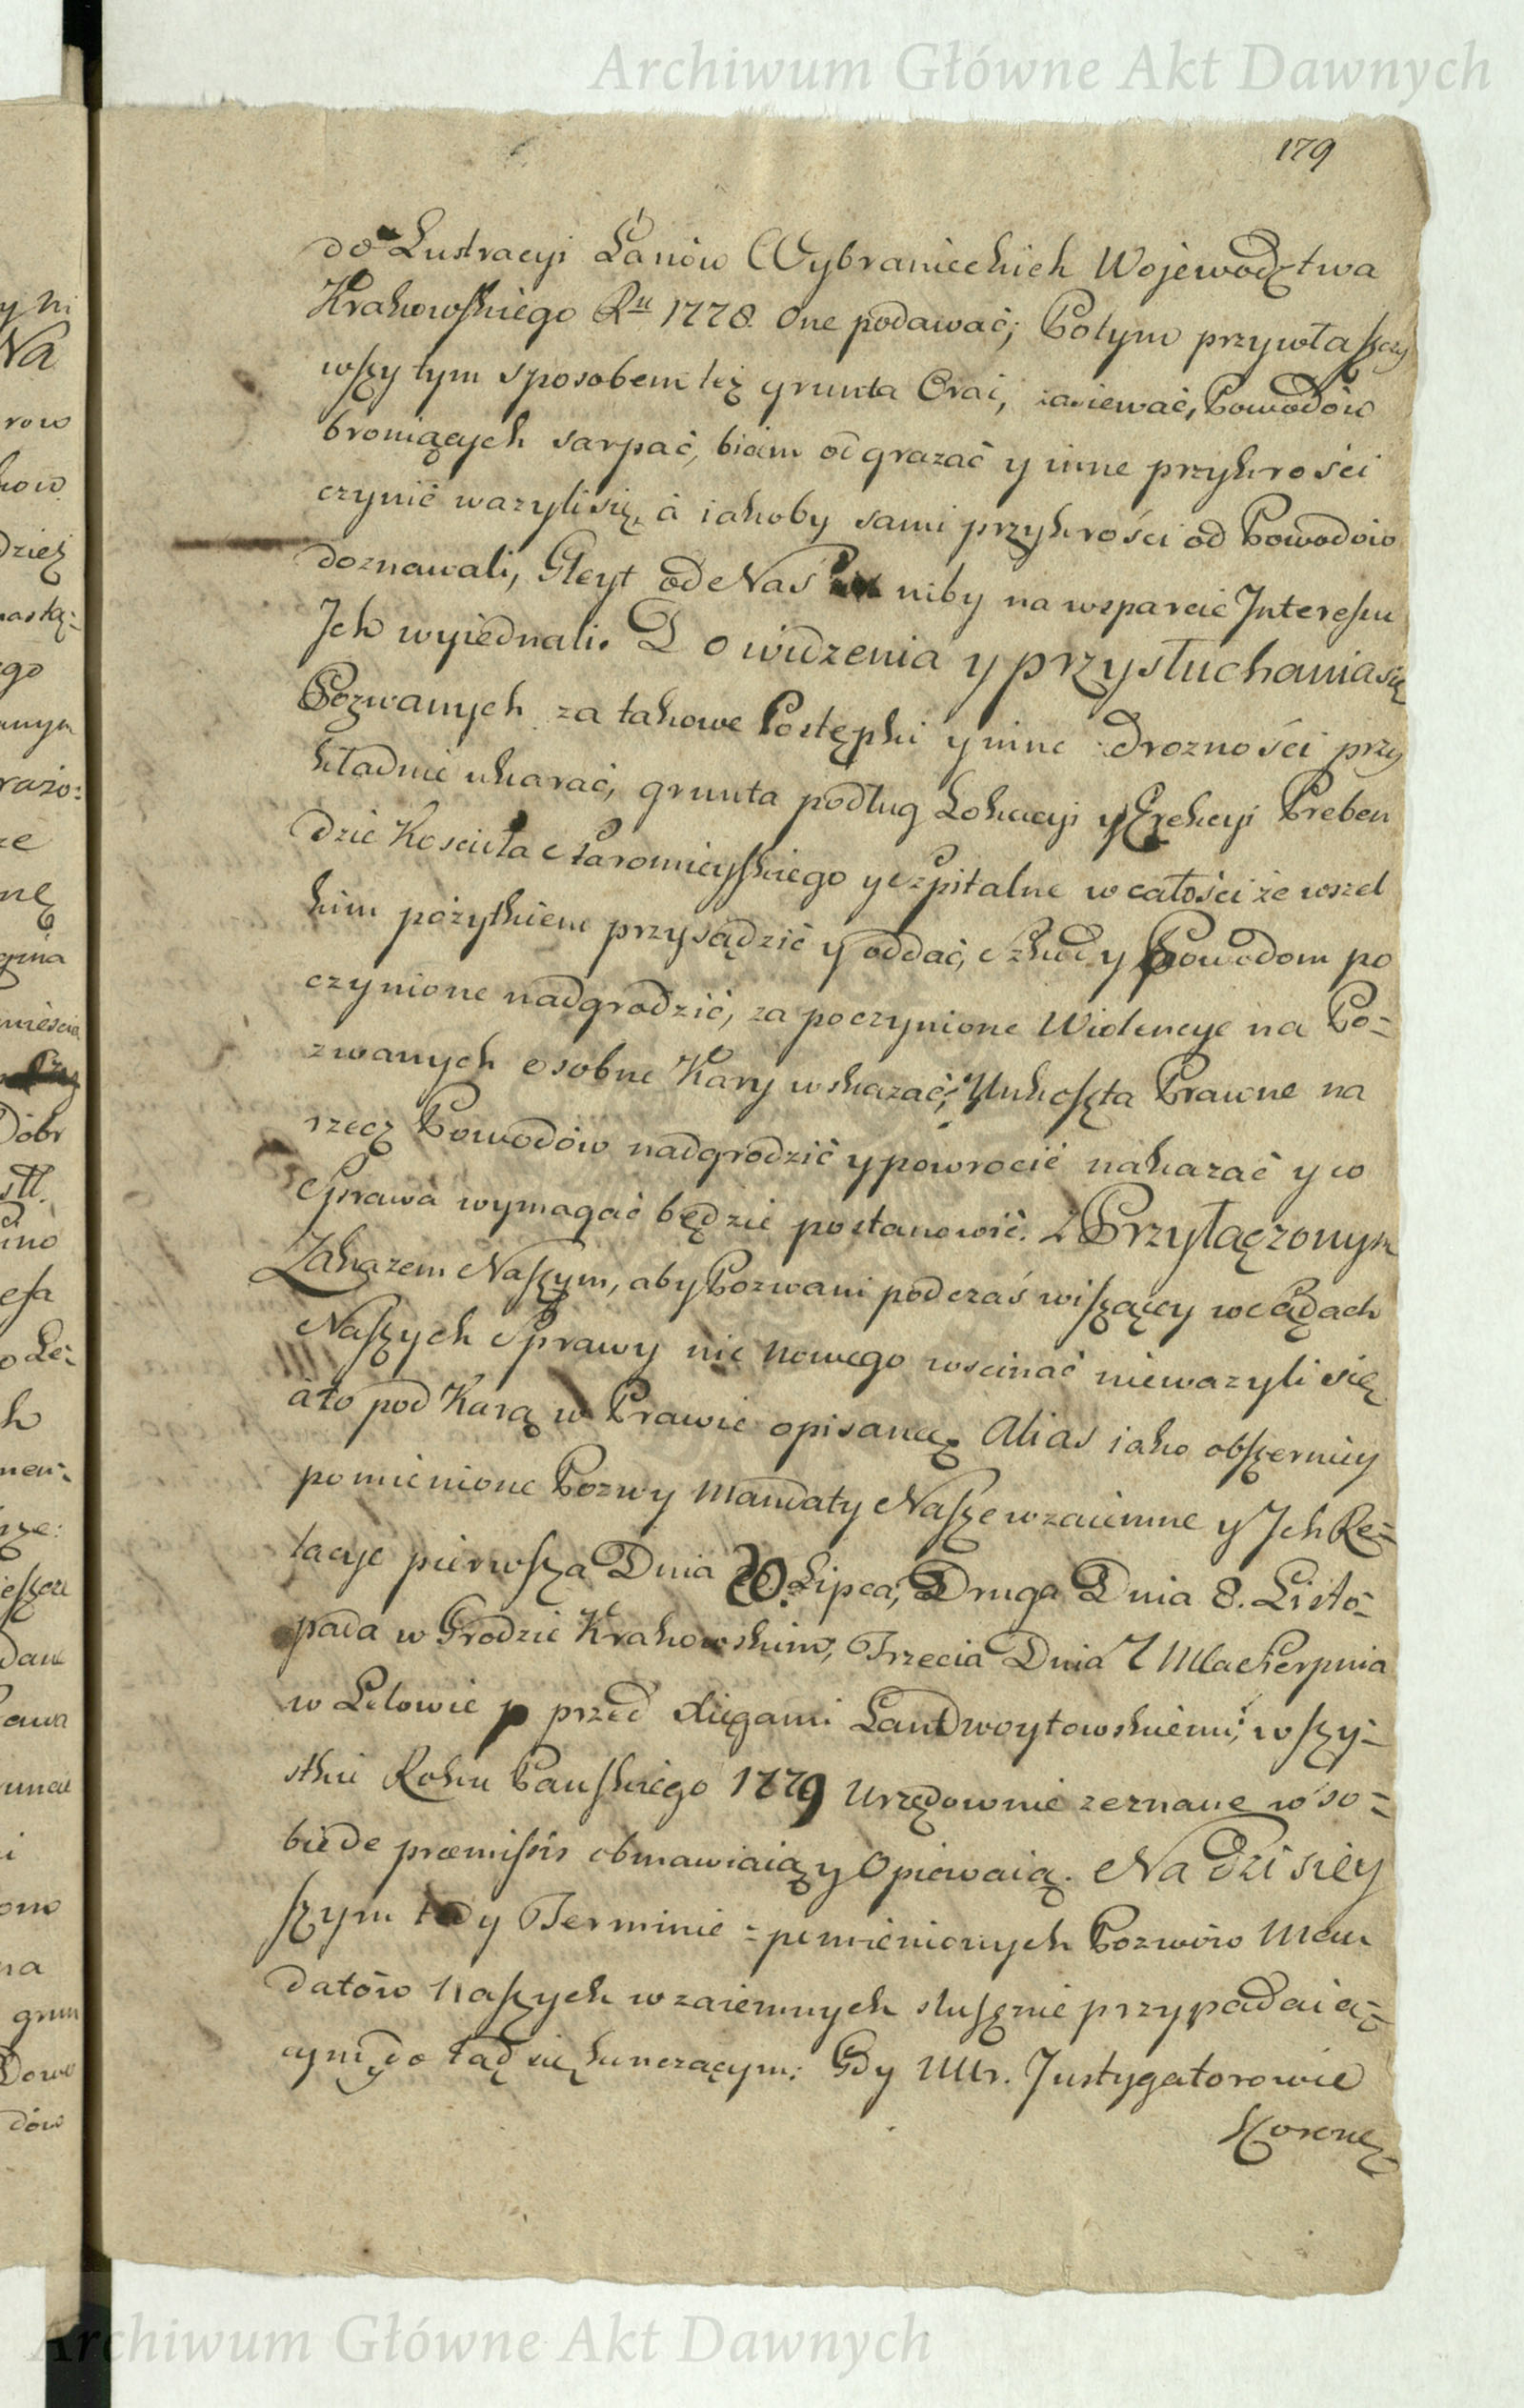 Archiwum Główne Akt Dawnych
179
do Lustracyi Łanów Wybranieckich Wojewodztwa
Krakowskiego Ru 1778 One podawać; Potym przywłaszczy
wszy tym sposobem też grunta Orać, zasiewać, Powodów
broniących sarpać, biciem odgrazać y inne przykrości
czynić wazyli się, á iakoby sami przykrości od Powodów
doznawali, Gleyt od Nas niby na wsparcie Interessu
Ich wyiednali. Do widzenia y przysłuchania się
Pozwanych za takowe Postępki y inne zdrozności przy
kładnie ukarać, grunta podług Lokacyi y Erekcyi Preben
dzie Kościoła Staromieyskiego y Szpitalne w całości ze wszel
kim pożytkiem przysądzić y oddać, Szkody Powodom po
czynione nadgrodzić, za poczynione Wiolencye na Po-
zwanych osobne Kary wskazać; Unkoszta Prawne na
rzecz Powodów nadgrodzić y powrocić nakazać y co
Sprawa wymagać będzie postanowić. Z Przyłączonym
Zakazem Naszym, aby Pozwani podczaś wiszącey w Sądach
Naszych Sprawy nic nowego wscinać nieważyli się
áto pod Karą w Prawie opisaną. Alias iako obszerniey
pomienione Pozwy Mandaty Nasze wzaiemne y Ich Re-
lacye pierwsza Dnia 20. Lipca, Druga Dnia 8. Listo-
pada w Grodzie Krakowskim, Trzecia Dnia 7 Mca Sierpnia
w Lelowie przed Xięgami Landwoytowskiemi, wszy-
stkie Roku Pańskiego 1779 Urzędownie zeznane w so-
bie de præmissis obmawiaią y Opiewaią. Na Dzisiey
szym tedy Terminie z pomienionych Pozwów Man
datów Naszych wzaiemnych słusznie przypadaią-
cym, do tąd się kunczącym: Gdy UUr. Justygatorowie
Koronę-
Archiwum Główne Akt Dawnych